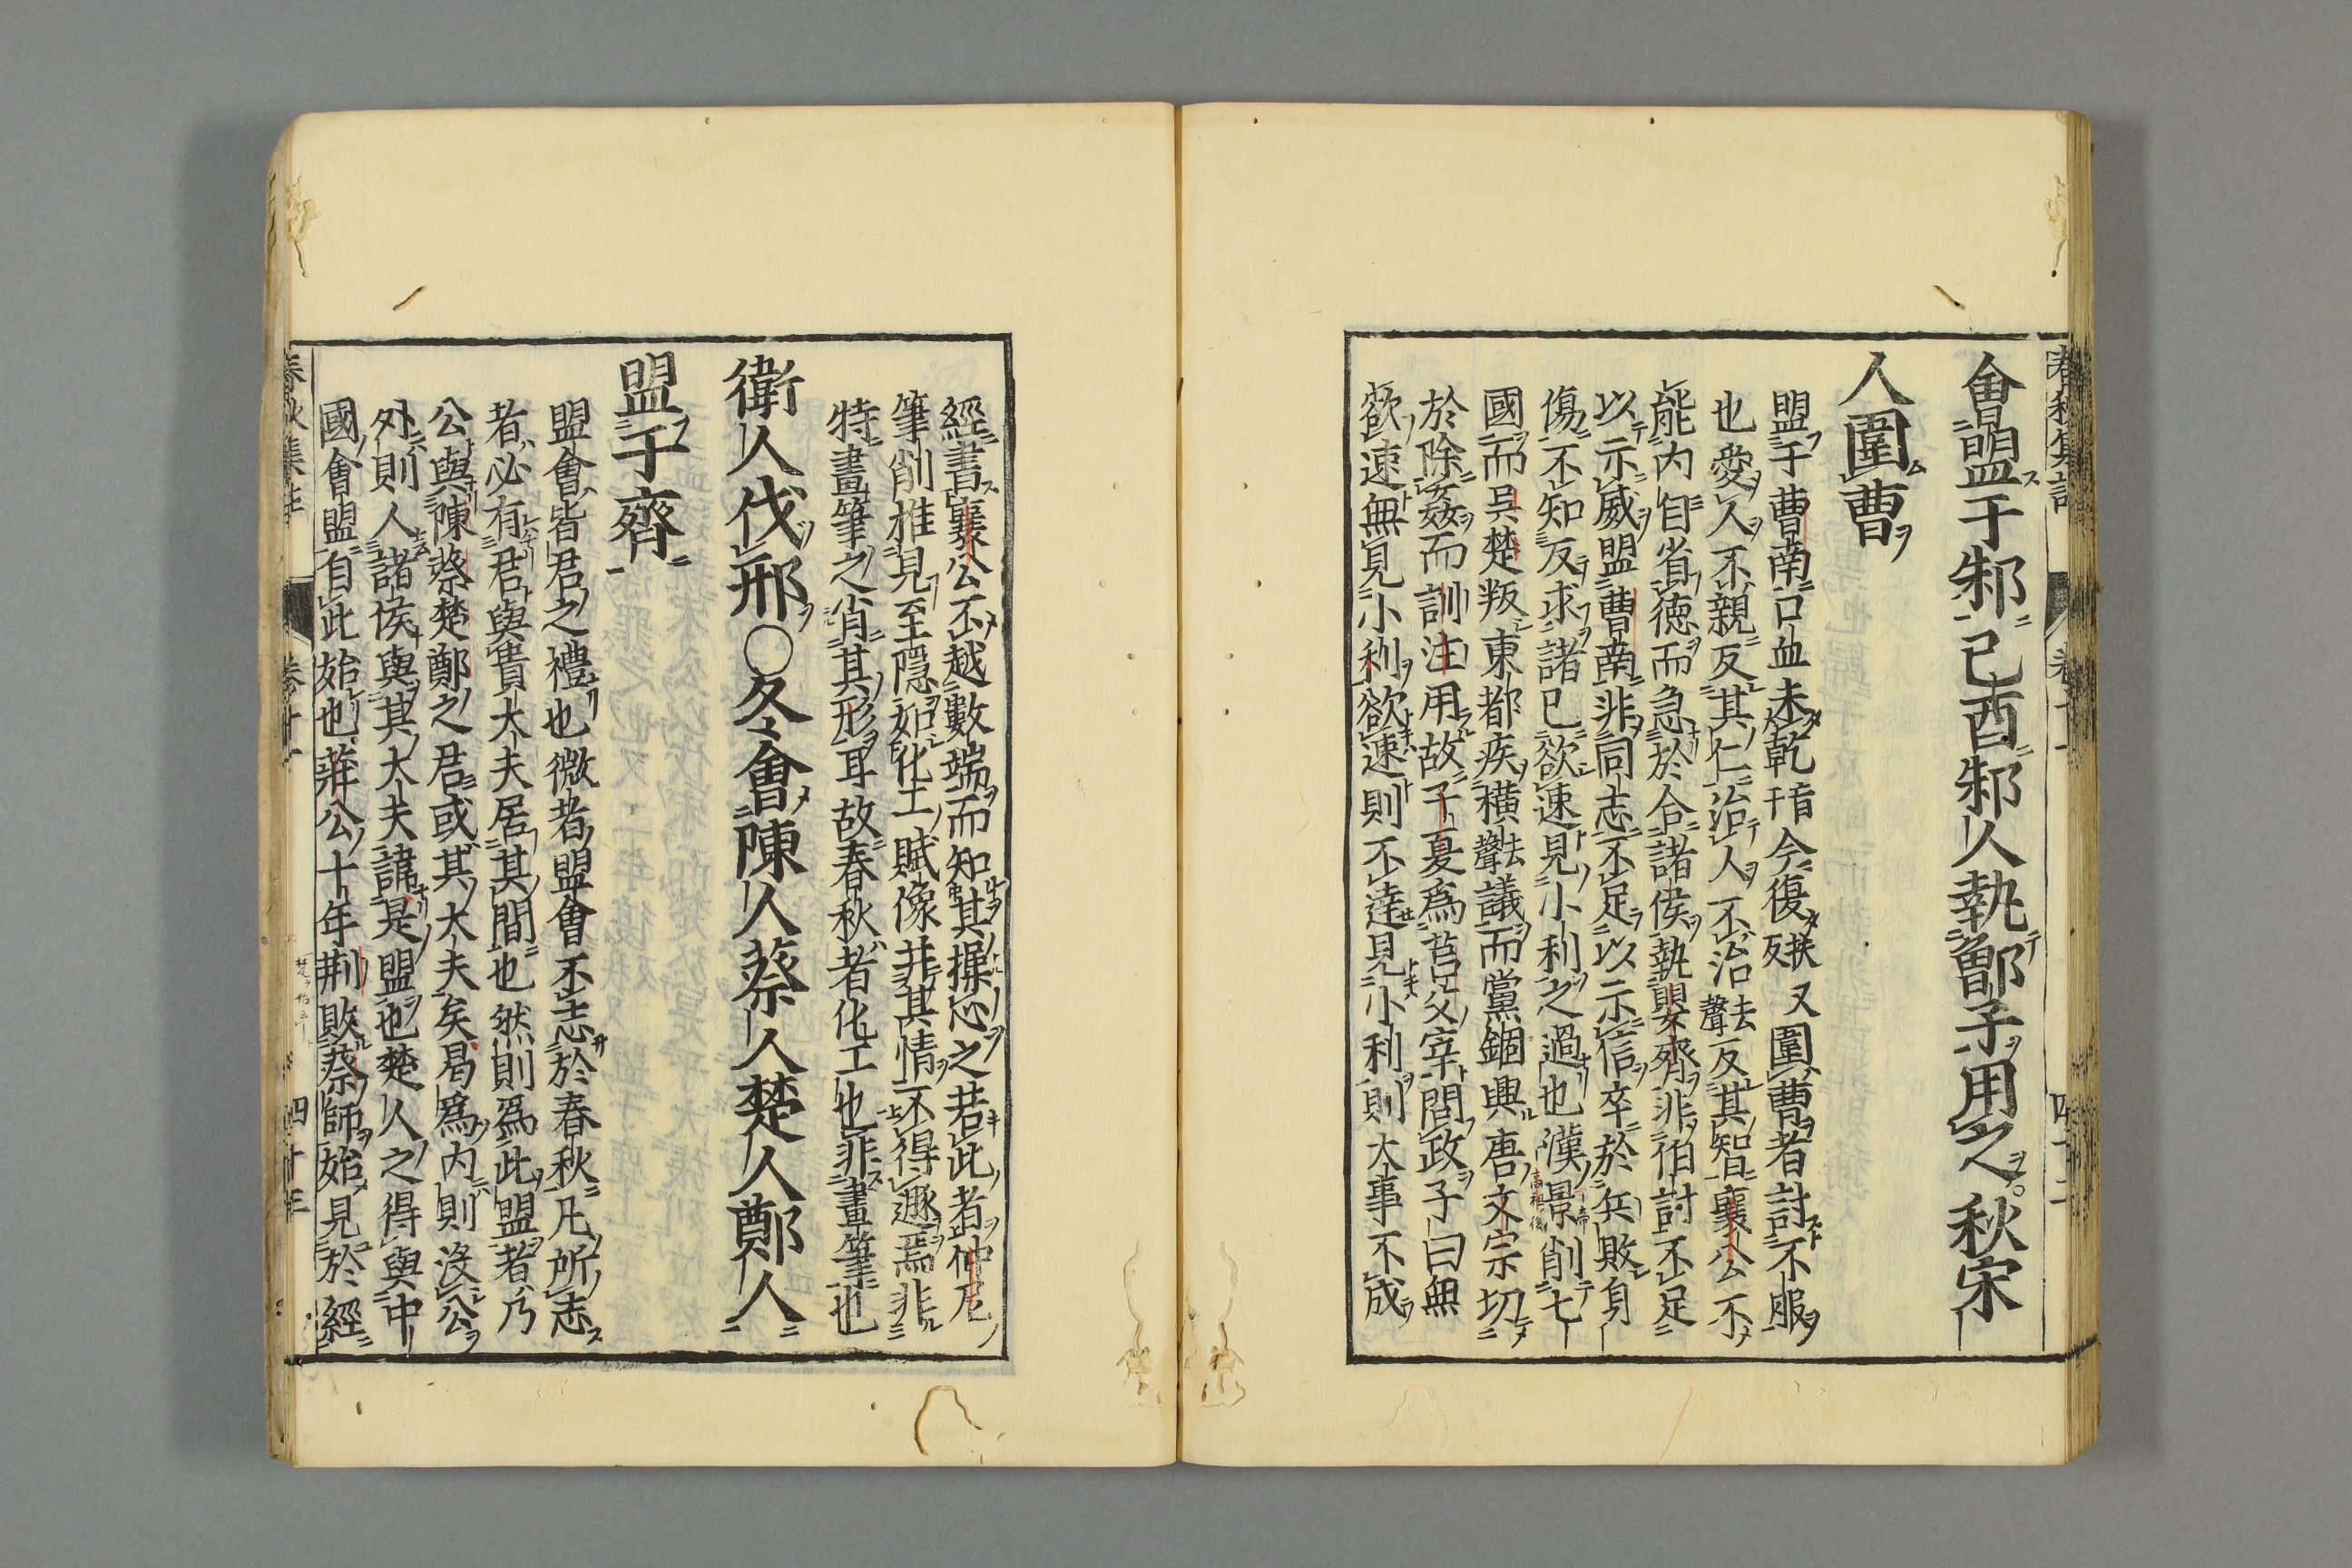 會盟于邾己酉邾人執鄫子用之秋宋
人圍曹
盟于曹南口血未乾音干今復扶又反圍曹者討不服
也愛人不親反其仁治人不治去聲反其智襄公不
能內自省德而急於合諸侯執嬰齊非伯討不足
以示威盟曹南非同志不足以示信卒於兵敗身
傷不知反求諸己欲速見小利之過也漢景削七
國而吳楚叛東都疾橫去聲議而黨錮興唐文宗切
於除姦而訓注用故子夏爲莒父宰問政子曰無
欲速無見小利欲速則不達見小利則大事不成
經書襄公不越數端而知其操心之若此者仲尼
筆削推見至隱如化工賦像并其情不得遯焉非
特畫筆之肖其形耳故春秋者化工也非畫筆也
衛人伐邢〇冬會陳人蔡人楚人鄭人
盟于齊
盟會皆君之禮也微者盟會不志於春秋凡所志
者必有君與貴大夫居其間也然則爲此盟者乃
公與陳蔡楚鄭之君或其大夫矣曷爲內則沒公
外則人諸侯與其大夫諱是盟也楚人之得與中
國會盟自此始也莊公十年荊敗蔡師始見於經
春秋集註 卷十一 四十三